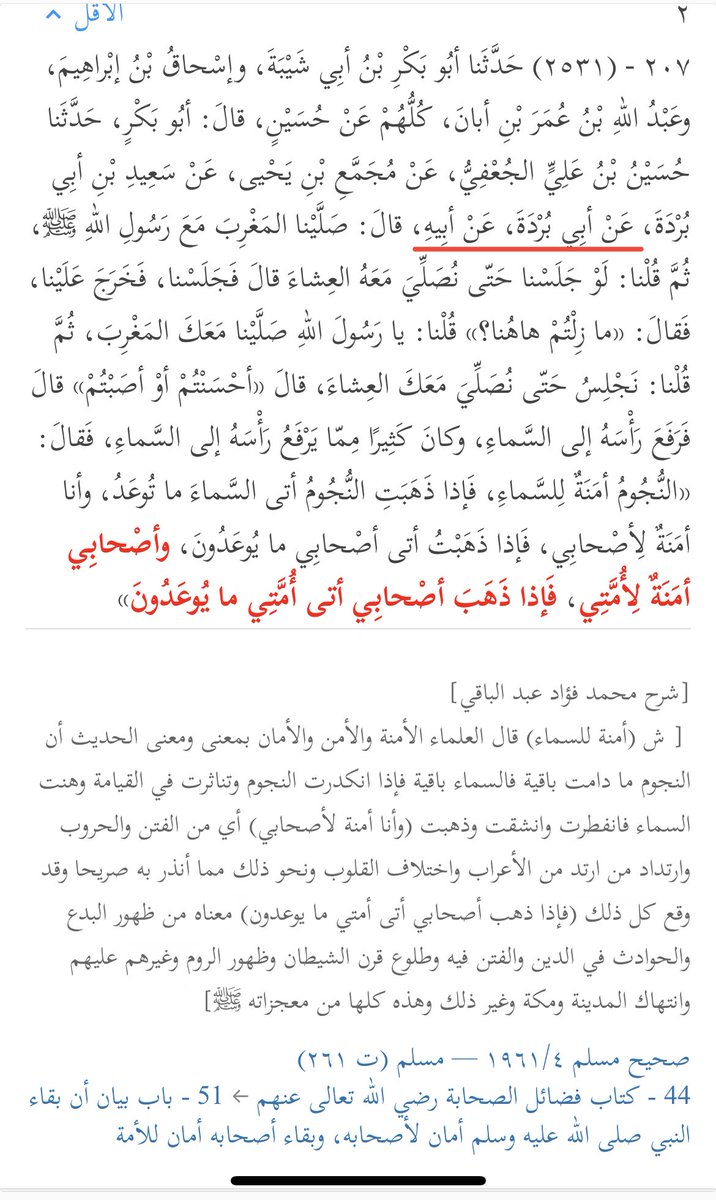 ٢
الأقل
٢٠٧ - (٢٥٣١) حَدَّثَنا أبُو بَكْرِ بْنُ أبِي شَيْبَةَ، وإسْحاقُ بْنُ إبْراهِيمَ،
وعَبْدُ اللهِ بْنُ عُمَرَ بْنِ أبانَ، كُلُّهُمْ عَنْ حُسَيْنٍ، قالَ: أبُو بَكْرٍ، حَدَّثَنا
حُسَيْنُ بْنُ عَلِيٍّ الجُعْفِيُّ، عَنْ مُجَمَّعِ بْنِ يَحْيى، عَنْ سَعِيدِ بْنِ أبِي
بُرْدَةَ، عَنْ أبِي بُرْدَةَ، عَنْ أبِيهِ، قالَ: صَلَّيْنا المَغْرِبَ مَعَ رَسُولِ اللهِ ﷺ،
ثُمَّ قُلْنا: لَوْ جَلَسْنا حَتّى نُصَلِّيَ مَعَهُ العِشاءَ قالَ فَجَلَسْنا، فَخَرَجَ عَلَيْنا،
فَقالَ: «ما زِلْتُمْ هاهُنا؟» قُلْنا: يا رَسُولَ اللهِ صَلَّيْنا مَعَكَ المَغْرِبَ، ثُمَّ
قُلْنا: نَجْلِسُ حَتّى نُصَلِّيَ مَعَكَ العِشاءَ، قالَ «أحْسَنْتُمْ أوْ أصَبْتُمْ» قالَ
فَرَفَعَ رَأْسَهُ إلى السَّماءِ، وكانَ كَثِيرًا مِمّا يَرْفَعُ رَأْسَهُ إلى السَّماءِ، فَقالَ:
«النُّجُومُ أمَنَةٌ لِلسَّماءِ، فَإذا ذَهَبَتِ النُّجُومُ أتى السَّماءَ ما تُوعَدُ، وأنا
أمَنَةٌ لِأصْحابِي، فَإذا ذَهَبْتُ أتى أصْحابِي ما يُوعَدُونَ، وأصْحابِي
أمَنَةٌ لِأُمَّتِي، فَإذا ذَهَبَ أصْحابِي أتى أُمَّتِي ما يُوعَدُونَ»
[شرح محمد فؤاد عبد الباقي]
[ ش (أمنة للسماء) قال العلماء الأمنة والأمن والأمان بمعنى ومعنى الحديث أن
النجوم ما دامت باقية فالسماء باقية فإذا انكدرت النجوم وتناثرت في القيامة وهنت
السماء فانفطرت وانشقت وذهبت (وأنا أمنة لأصحابي) أي من الفتن والحروب
وارتداد من ارتد من الأعراب واختلاف القلوب ونحو ذلك مما أنذر به صريحا وقد
وقع كل ذلك (فإذا ذهب أصحابي أتى أمتي ما يوعدون) معناه من ظهور البدع
والحوادث في الدين والفتن فيه وطلوع قرن الشيطان وظهور الروم وغيرهم عليهم
وانتهاك المدينة ومكة وغير ذلك وهذه كلها من معجزاته ﷺ]
صحيح مسلم ٤/١٩٦١ — مسلم (ت ٢٦١)
44 - كتاب فضائل الصحابة رضي الله تعالى عنهم ← 51 - باب بيان أن بقاء
النبي صلى الله عليه وسلم أمان لأصحابه، وبقاء أصحابه أمان للأمة